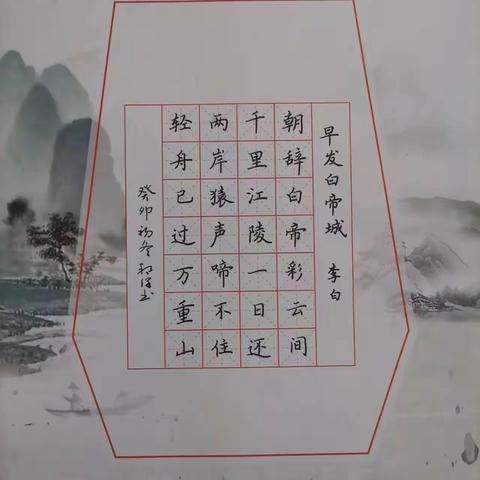 早发白帝城 李白
朝辞白帝彩云间
千里江陵一日还
两岸猿声啼不住
轻舟已过万重山
癸卯初冬